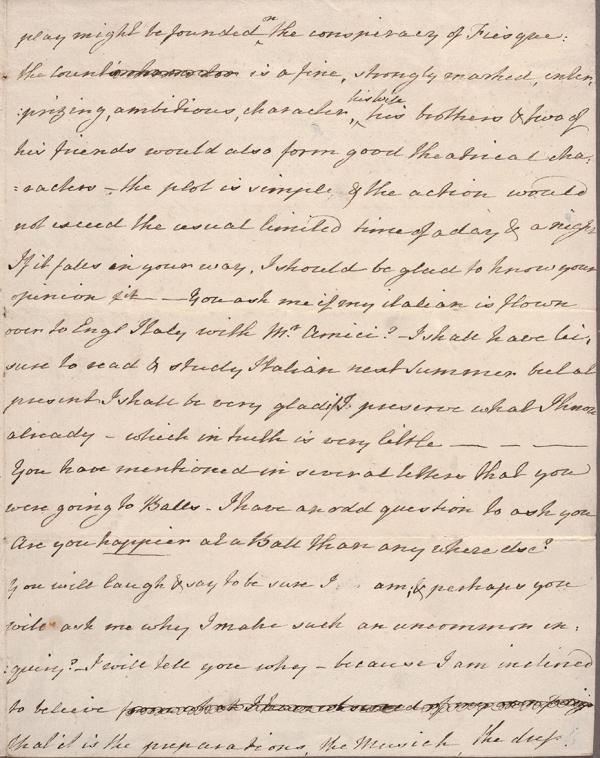 play might be founded on the conspiracy of Fiesque:
the count is a fine, strongly marked, enter,
:prizing, ambitious, character, his wife his brothers & two of
his friends would also form good theatrical cha:
:racters – the plot is simple & the action would
not exceed the usual limited time of a day & a night
If it falls in your way, I should be glad to know your
opinion – – You ask me if my italian is flown
over to Engl Italy with Mr Amici? – I shall have lei,
sure to read & study Italian next Summer but at
present I shall be very glad if I preserve what I know
already – which in truth is very little — — —
You have mentioned in several letters that you
were going to Balls – I have an odd question to ask you
Are you happier at a Ball than any where else?
you will laugh & say to be sure I am; & perhaps you
will ask me why I make such an uncommon in:
:quiry? – I will tell you why – because I am inclined
to believe from what I have observed of my own feelings
that it is the preparations, the Musick, the dress: